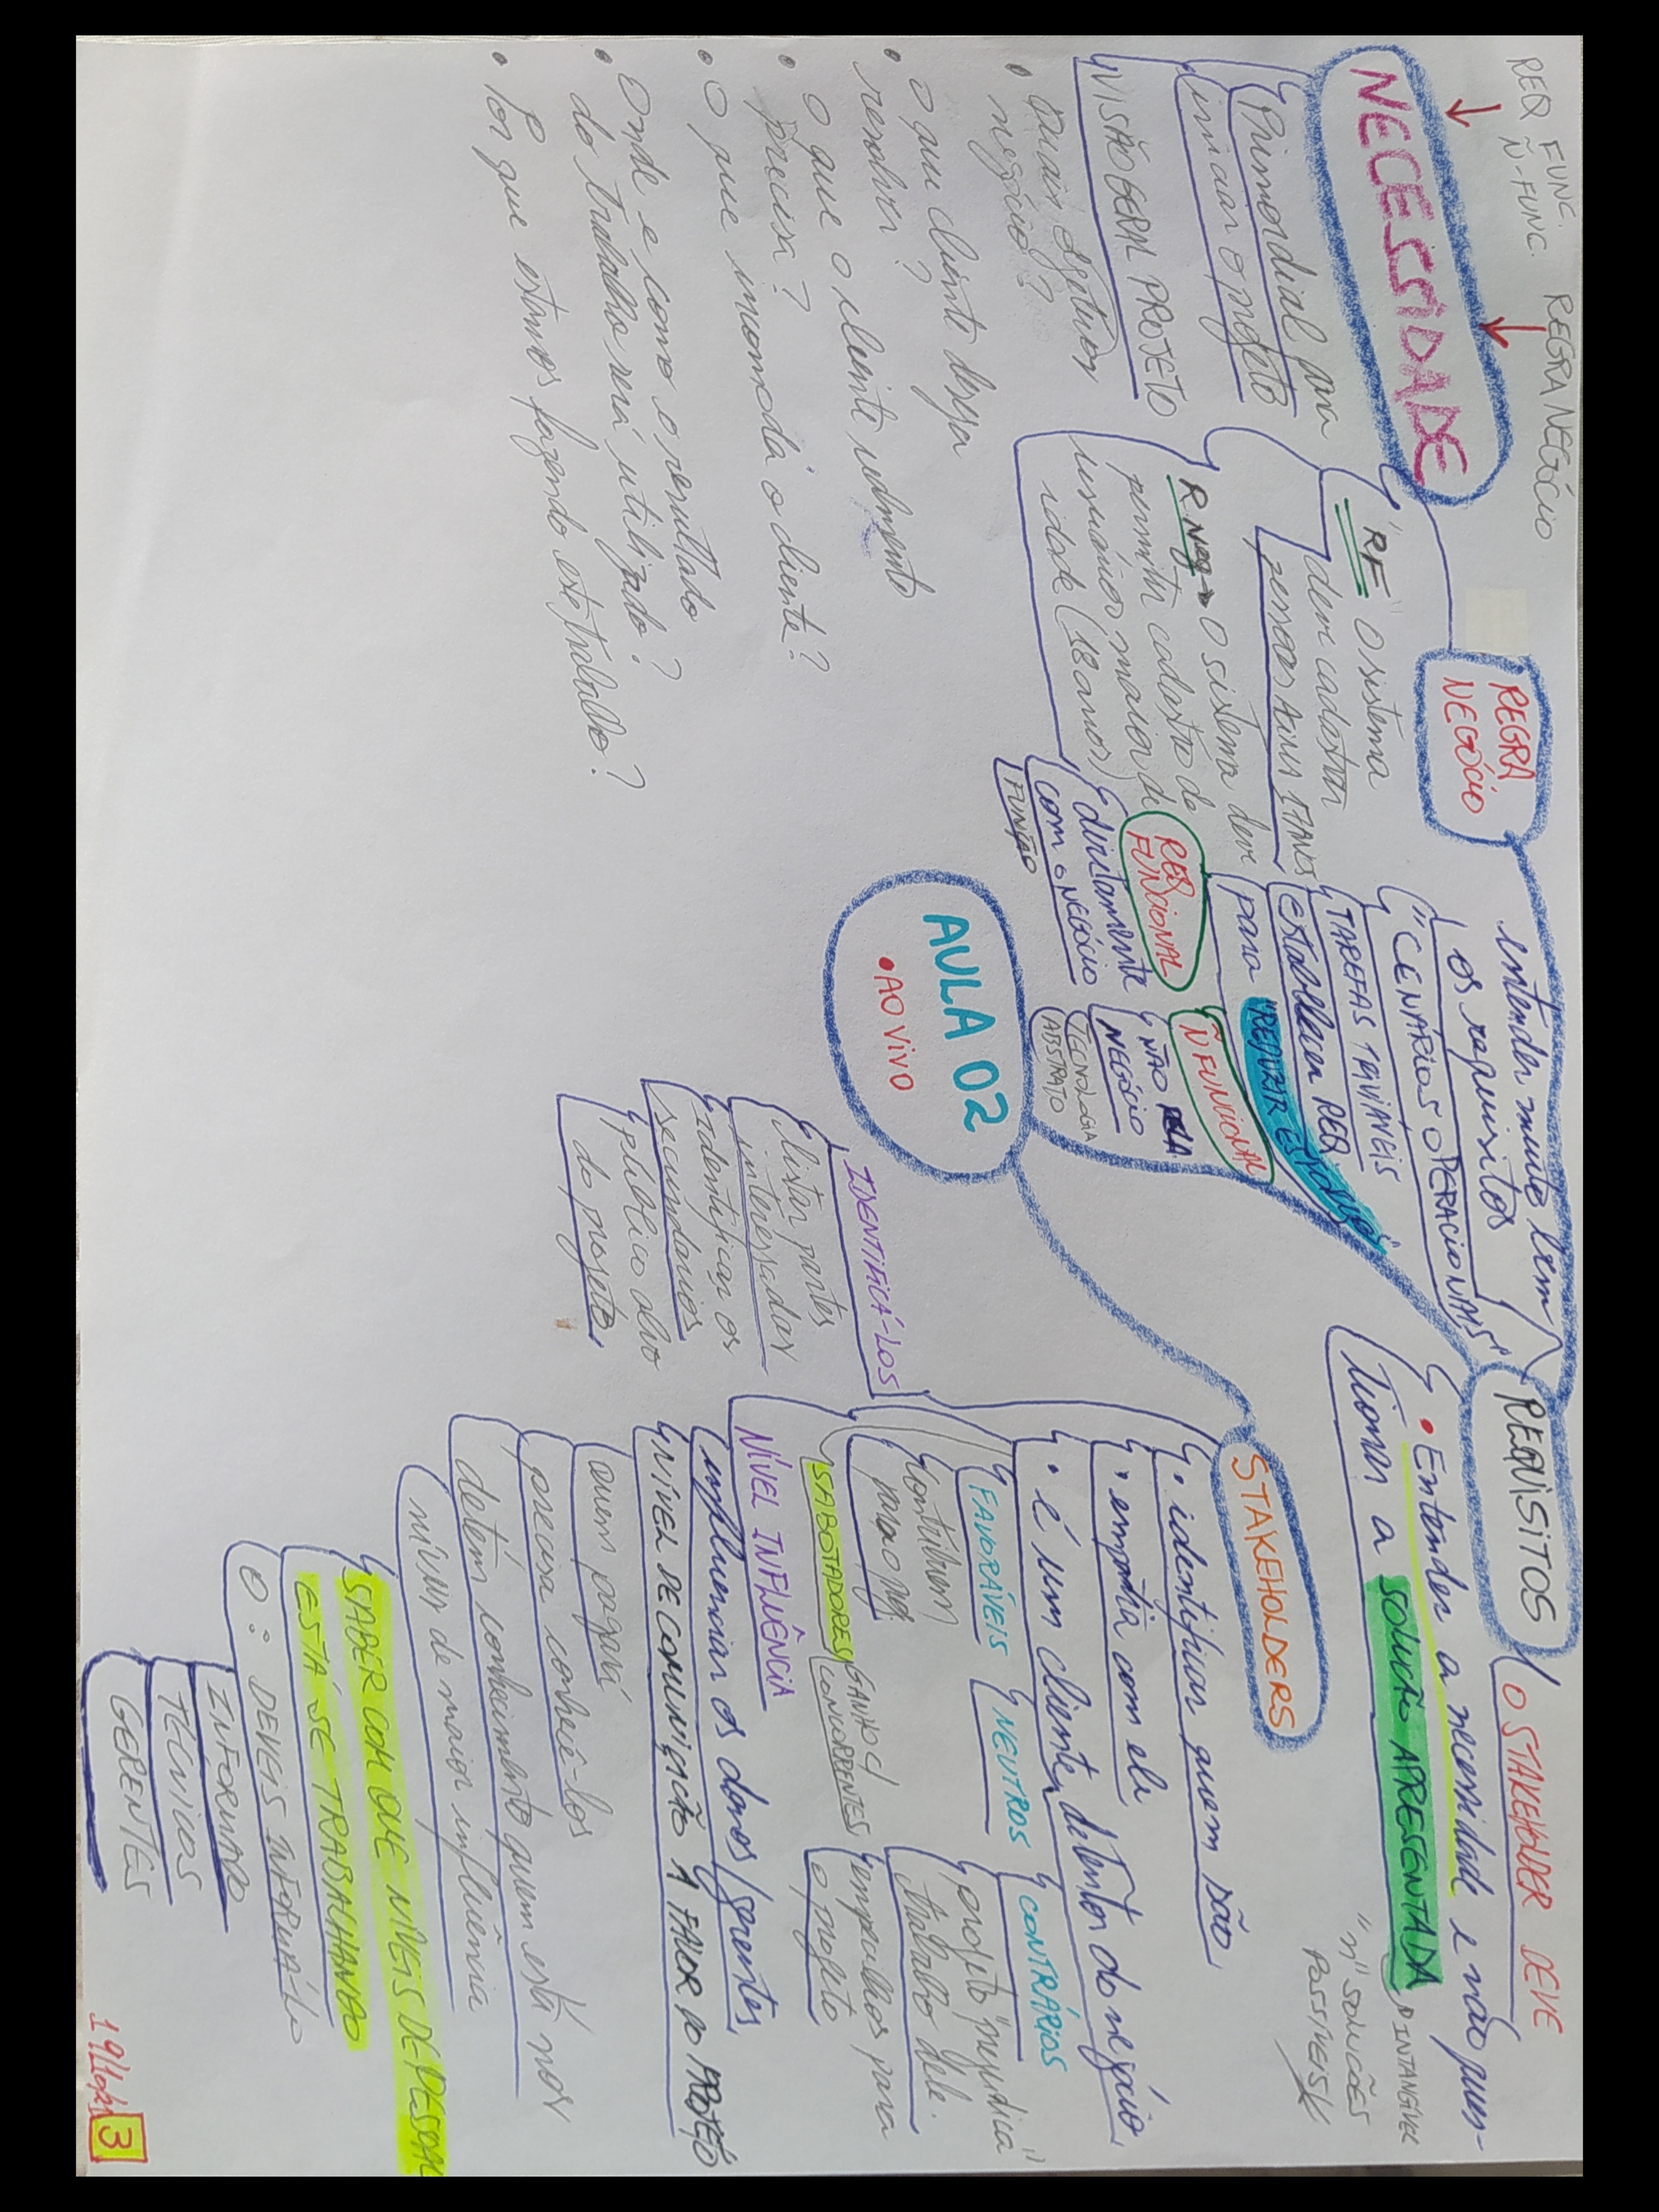 REQ FUNC.
Ñ-FUNC.
REGRA NEGÓCIO
NECESSIDADE
Primordial para
iniciar o projeto
VISÃO GERAL PROJETO
• Quais objetivos
negócio?
• O que cliente deseja
resolver?
• O que o cliente realmente
precisa?
• O que incomoda o cliente?
• Onde e como o resultado
do trabalho será utilizado?
• Por que estamos fazendo este trabalho?
REGRA
NEGÓCIO
"RF" O sistema
deve cadastrar
pessoas ACIMA 17 ANOS
R Neg → O sistema deve
permitir cadastro de
usuários maior de
idade (18 anos)
REQUISITOS
entender muito bem
os requisitos
"CENÁRIOS OPERACIONAIS"
TAREFAS TRIVIÁVEIS
estabelecer REQ.
para "REDUZIR ESFORÇOS"
REQ
FUNCIONAL
diretamente
com o NEGÓCIO
FUNÇÃO
Ñ FUNCIONAL
NÃO
NEGÓCIO
TECNOLOGIA
ABSTRATO
O STAKEHOLDER DEVE
• Entender a necessidade e não ques-
tionar a SOLUCÃO APRESENTADA
INTANGÍVEL
"n" SOLUCÕES
POSSÍVEIS
AULA 02
• AO VIVO
STAKEHOLDERS
• identificar quem são
• empatia com ele
• é um cliente, detentor do negócio
FAVORÁVEIS
contribuem
para o proj.
NEUTROS
CONTRÁRIOS
projeto "prejudica"
trabalho dele.
empecilhos para
o projeto
SABOTADORES
GANHO C/
CONCORRENTES
IDENTIFICÁ-LOS
listar partes
interessadas
Identificar os
secundários
público alvo
do projeto
NÍVEL INFLUÊNCIA
influenciar os donos/gerentes
NÍVEL DE COMUNICAÇÃO A FAVOR DO PROJETO
quem pagará
precisa conhecê-los
detém conhecimento quem está nos
níveis de maior influência
SABER COM QUE NÍVEIS DE PESSOAL
ESTÁ SE TRABALHANDO
O : DEVEIS INFORMÁ-LO
INFORMADO
TÉCNICOS
GERENTES
19/10/21 3